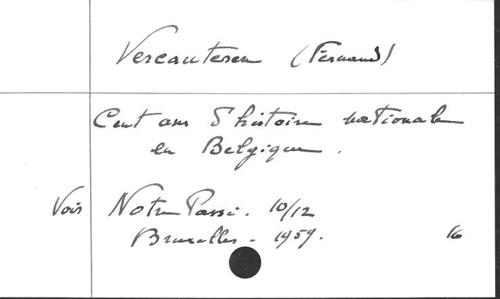 Vercauteren (Fernand)
Cent ans d'histoire nationale
en Belgique.
Voir Notre Passé. 10/12
Bruxelles - 1959. 16